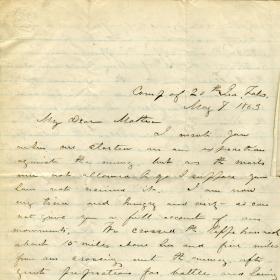 Camp of 20th
May 7 1863
My Dear Mother
I wrote you
when we started on an expedition
against the enemy but as the mails
were not allowed to go I suppose you
have not received it. I am now
very tired and hungry and
not give you a full account of our
movements. We crossed the
about 15 miles above
from crossing met the enemy, after
great preparations for battle and